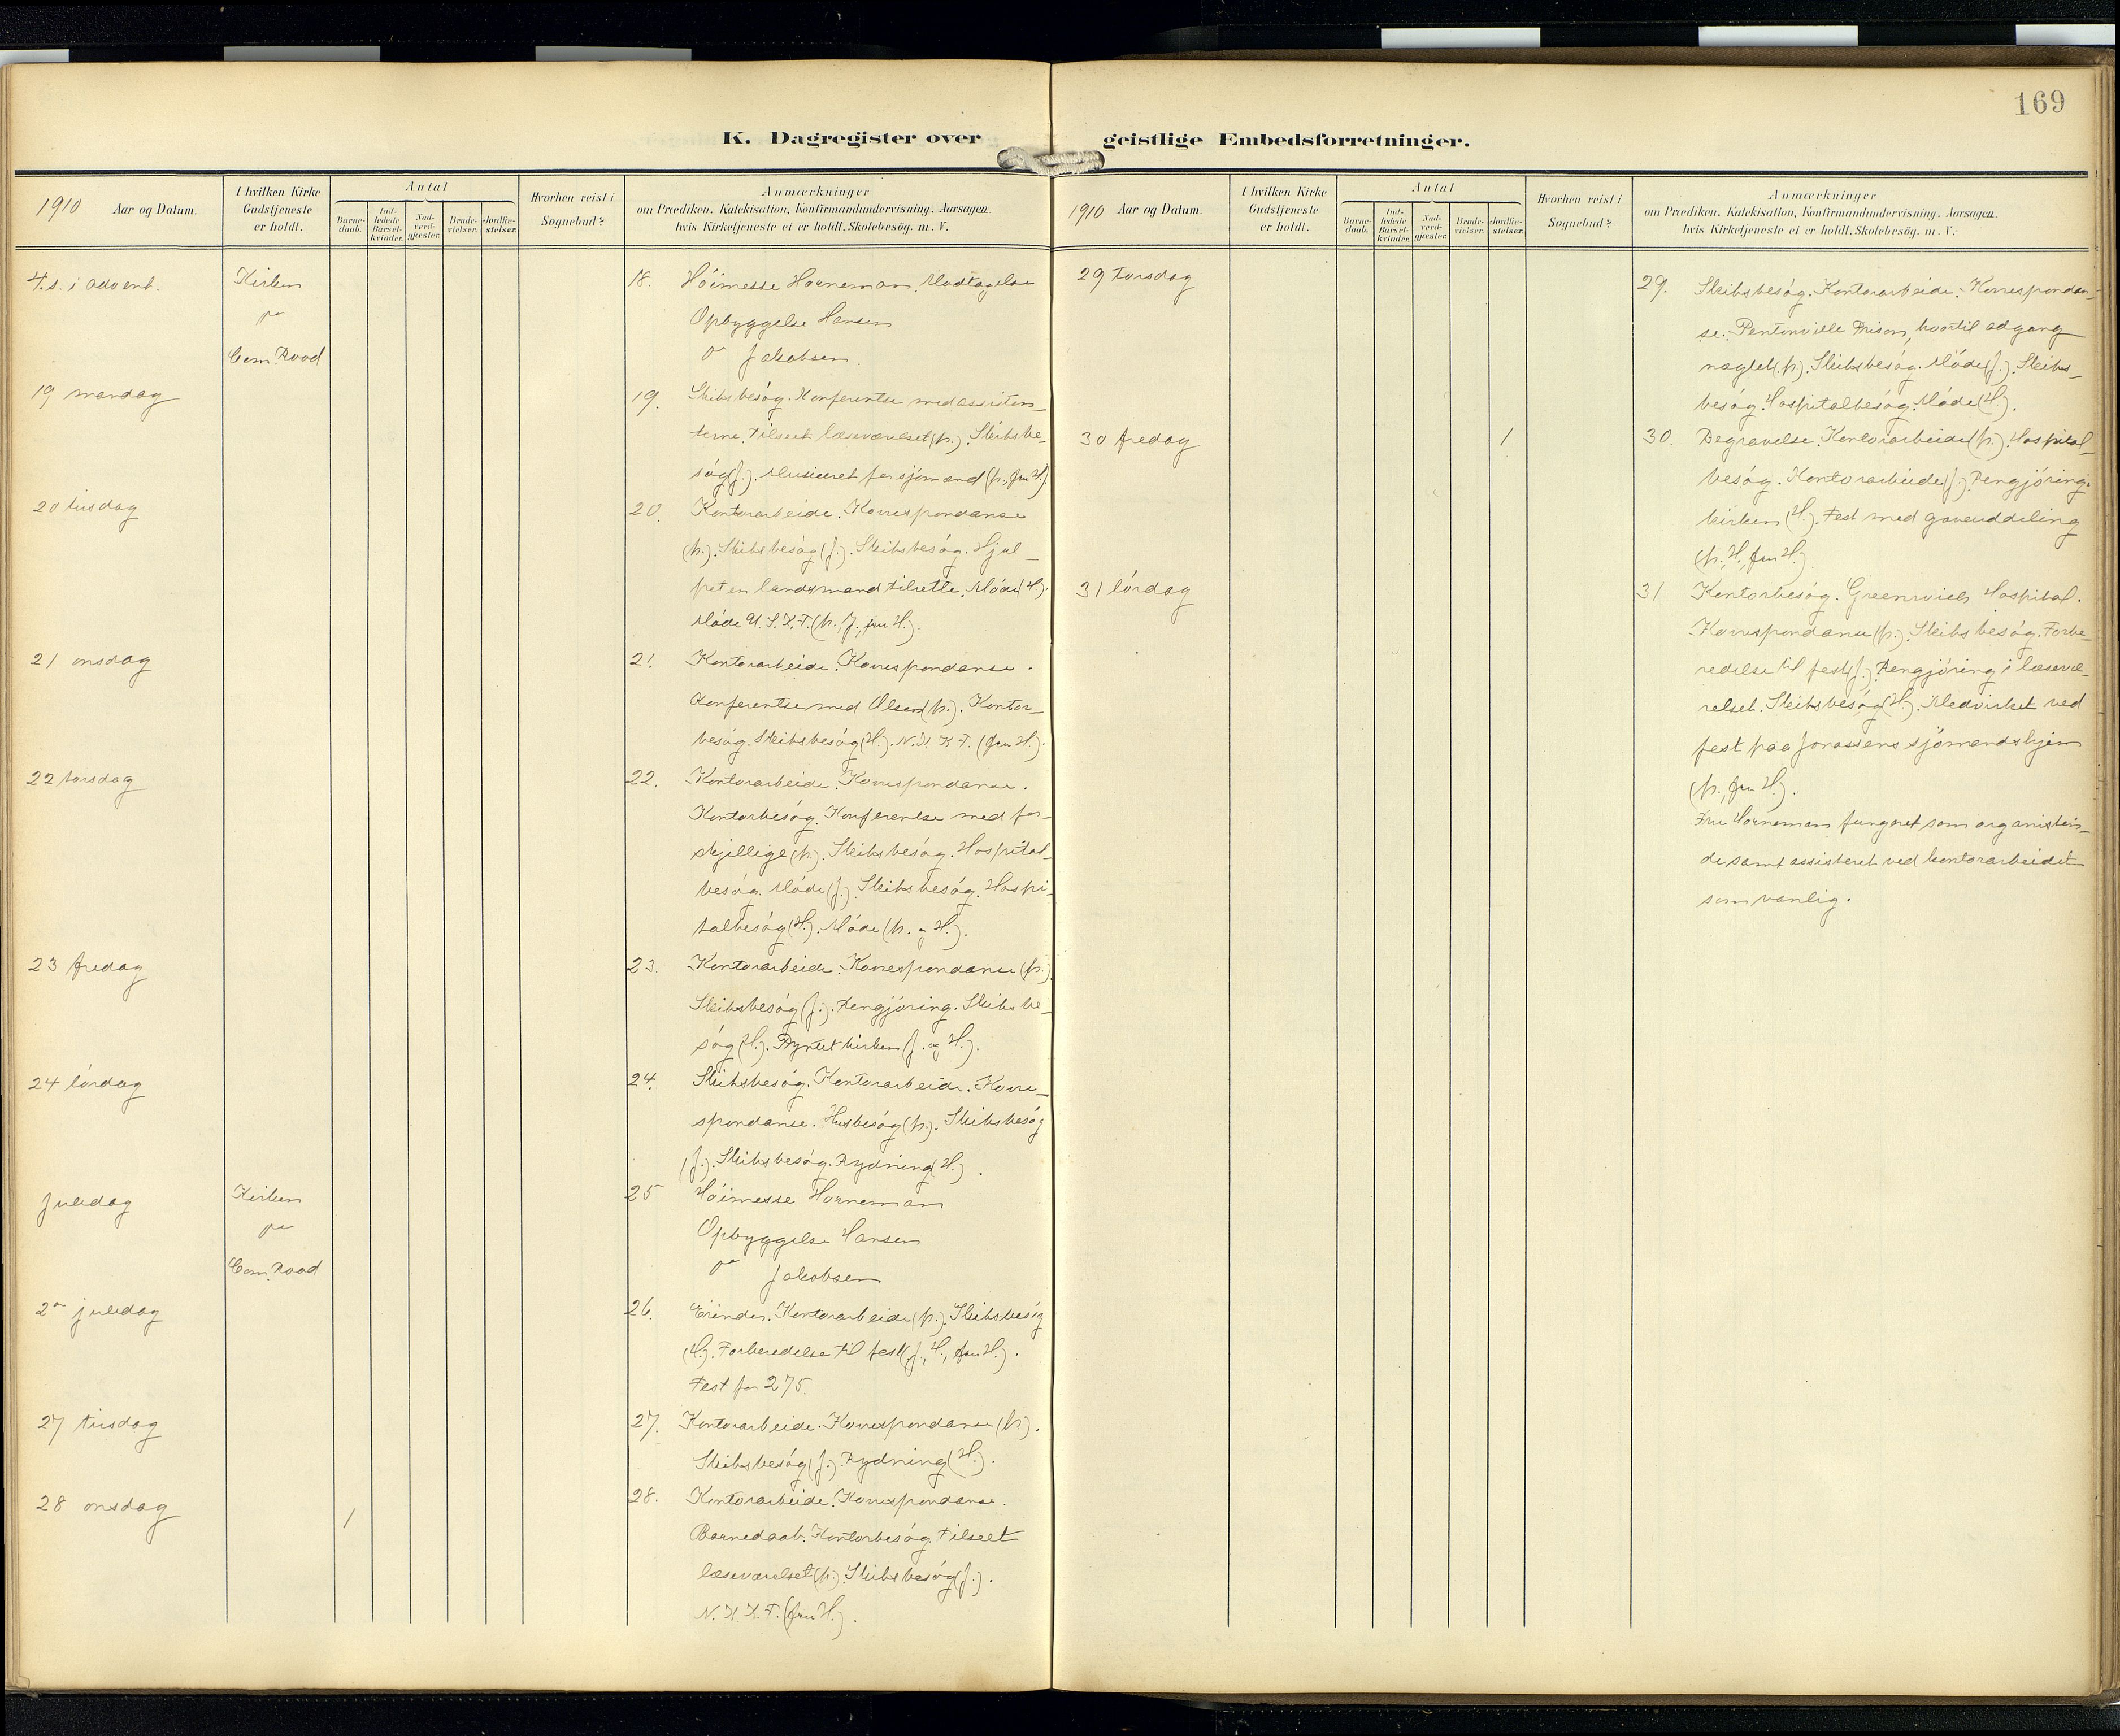 169
K. Dagregister over geistlige Embedsforretninger.
1910 Aar og Datum.
I hvilken Kirke Gudstjeneste er holdt.
Antal
Barne-daab.
Ind-ledede Barsel-kvinder.
Nad-verd-gjæster.
Brude-vielser.
Jordfæ-stelser.
Hvorhen reist i Sognebud?
Anmærkninger
om Prædiken, Katekisation, Konfirmandundervisning. Aarsagen,
hvis Kirketjeneste ei er holdt, Skolebesög. m. V.
4. s. i advent.
Kirken
Com. Road
18. Höimesse Horneman. Modtagelse
Opbyggelse Hansen
Jakobsen.
19 mandag
19. Skibsbesög. Konferentse med assisten-
terne. Tilseet læseværelset (h.). Skibsbe-
sög (J.). Musiceret for sjömænd (h., fru H.)
20 tirsdag
20. Kontorarbeide. Korrespondanse
(h.). Skibsbesög (J.). Skibsbesög. Hjul-
pet en landsmand tilrette. Möde (H.).
Möde U.S.K.F. (h., J., fru H.).
21 onsdag
21. Kontorarbeide. Korrespondanse.
Konferentse med Olsen (h.). Kontor-
besög. Skibsbesög (H.). N.K.K.F. (fru H.).
22 torsdag
22. Kontorarbeide. Korrespondanse.
Kontorbesög. Konferentse med for-
skjellige (h.). Skibsbesög. Hospital-
besög. Möde (J.). Skibsbesög. Hospi-
talbesög (H.). Möde (h. og H.).
23 fredag
23. Kontorarbeide. Korrespondanse (h.)
Skibsbesög (J.). Rengjöring. Skibsbe-
sög (H.). Pyntet kirken (J. og H.).
24 lördag
24. Skibsbesög. Kontorarbeide. Korre-
spondanse. Husbesög (h.). Skibsbesög
(J.). Skibsbesög. Rydning (H.).
Juledag
Kirken
Com. Road
25 Höimesse Horneman
Opbyggelse Hansen
Jakobsen
2n juledag
26. Erinder. Kontorarbeide (h.). Skibsbesög
(H.). Forberedelse til fest (J., H., fru H.).
Fest for 275.
27 tirsdag
27. Kontorarbeide. Korrespondanse (h.).
Skibsbesög (J.). Rydning (H.).
28 onsdag
1
28. Kontorarbeide. Korrespondanse.
Barnedaab. Kontorbesög. Tilseet
læseværelset (h.). Skibsbesög (J.).
N.K.K.F. (fru H.).
1910 Aar og Datum.
I hvilken Kirke Gudstjeneste er holdt.
Antal
Barne-daab.
Ind-ledede Barsel-kvinder.
Nad-verd-gjæster.
Brude-vielser.
Jordfæ-stelser.
Hvorhen reist i Sognebud?
Anmærkninger
om Prædiken, Katekisation, Konfirmandundervisning. Aarsagen,
hvis Kirketjeneste ei er holdt, Skolebesög. m. V.
29 Torsdag
29. Skibsbesög. Kontorarbeide. Korrespondan-
se. Pentonville Prison, hvortil adgang
nægtet (h.). Skibsbesög. Möde (J.). Skibs-
besög. Hospitalbesög. Möde (H.).
30 fredag
1
30. Begravelse. Kontorarbeide (h.). Hospital-
besög. Kontorarbeide (J.). Rengjöring i
kirken (H.). Fest med gaveuddeling
(h., H., fru H.).
31 lördag
31 Kontorbesög. Greenwich Hospital.
Korrespondanse (h.). Skibsbesög. Forbe-
redelse til fest (J.). Rengjöring i læsevæ-
relset. Skibsbesög (H.). Medvirket ved
fest paa Jonassens sjömandshjem
(h., fru H.).
Fru Horneman fungeret som organistin-
de samt assisteret ved kontorarbeidet
som vanlig.